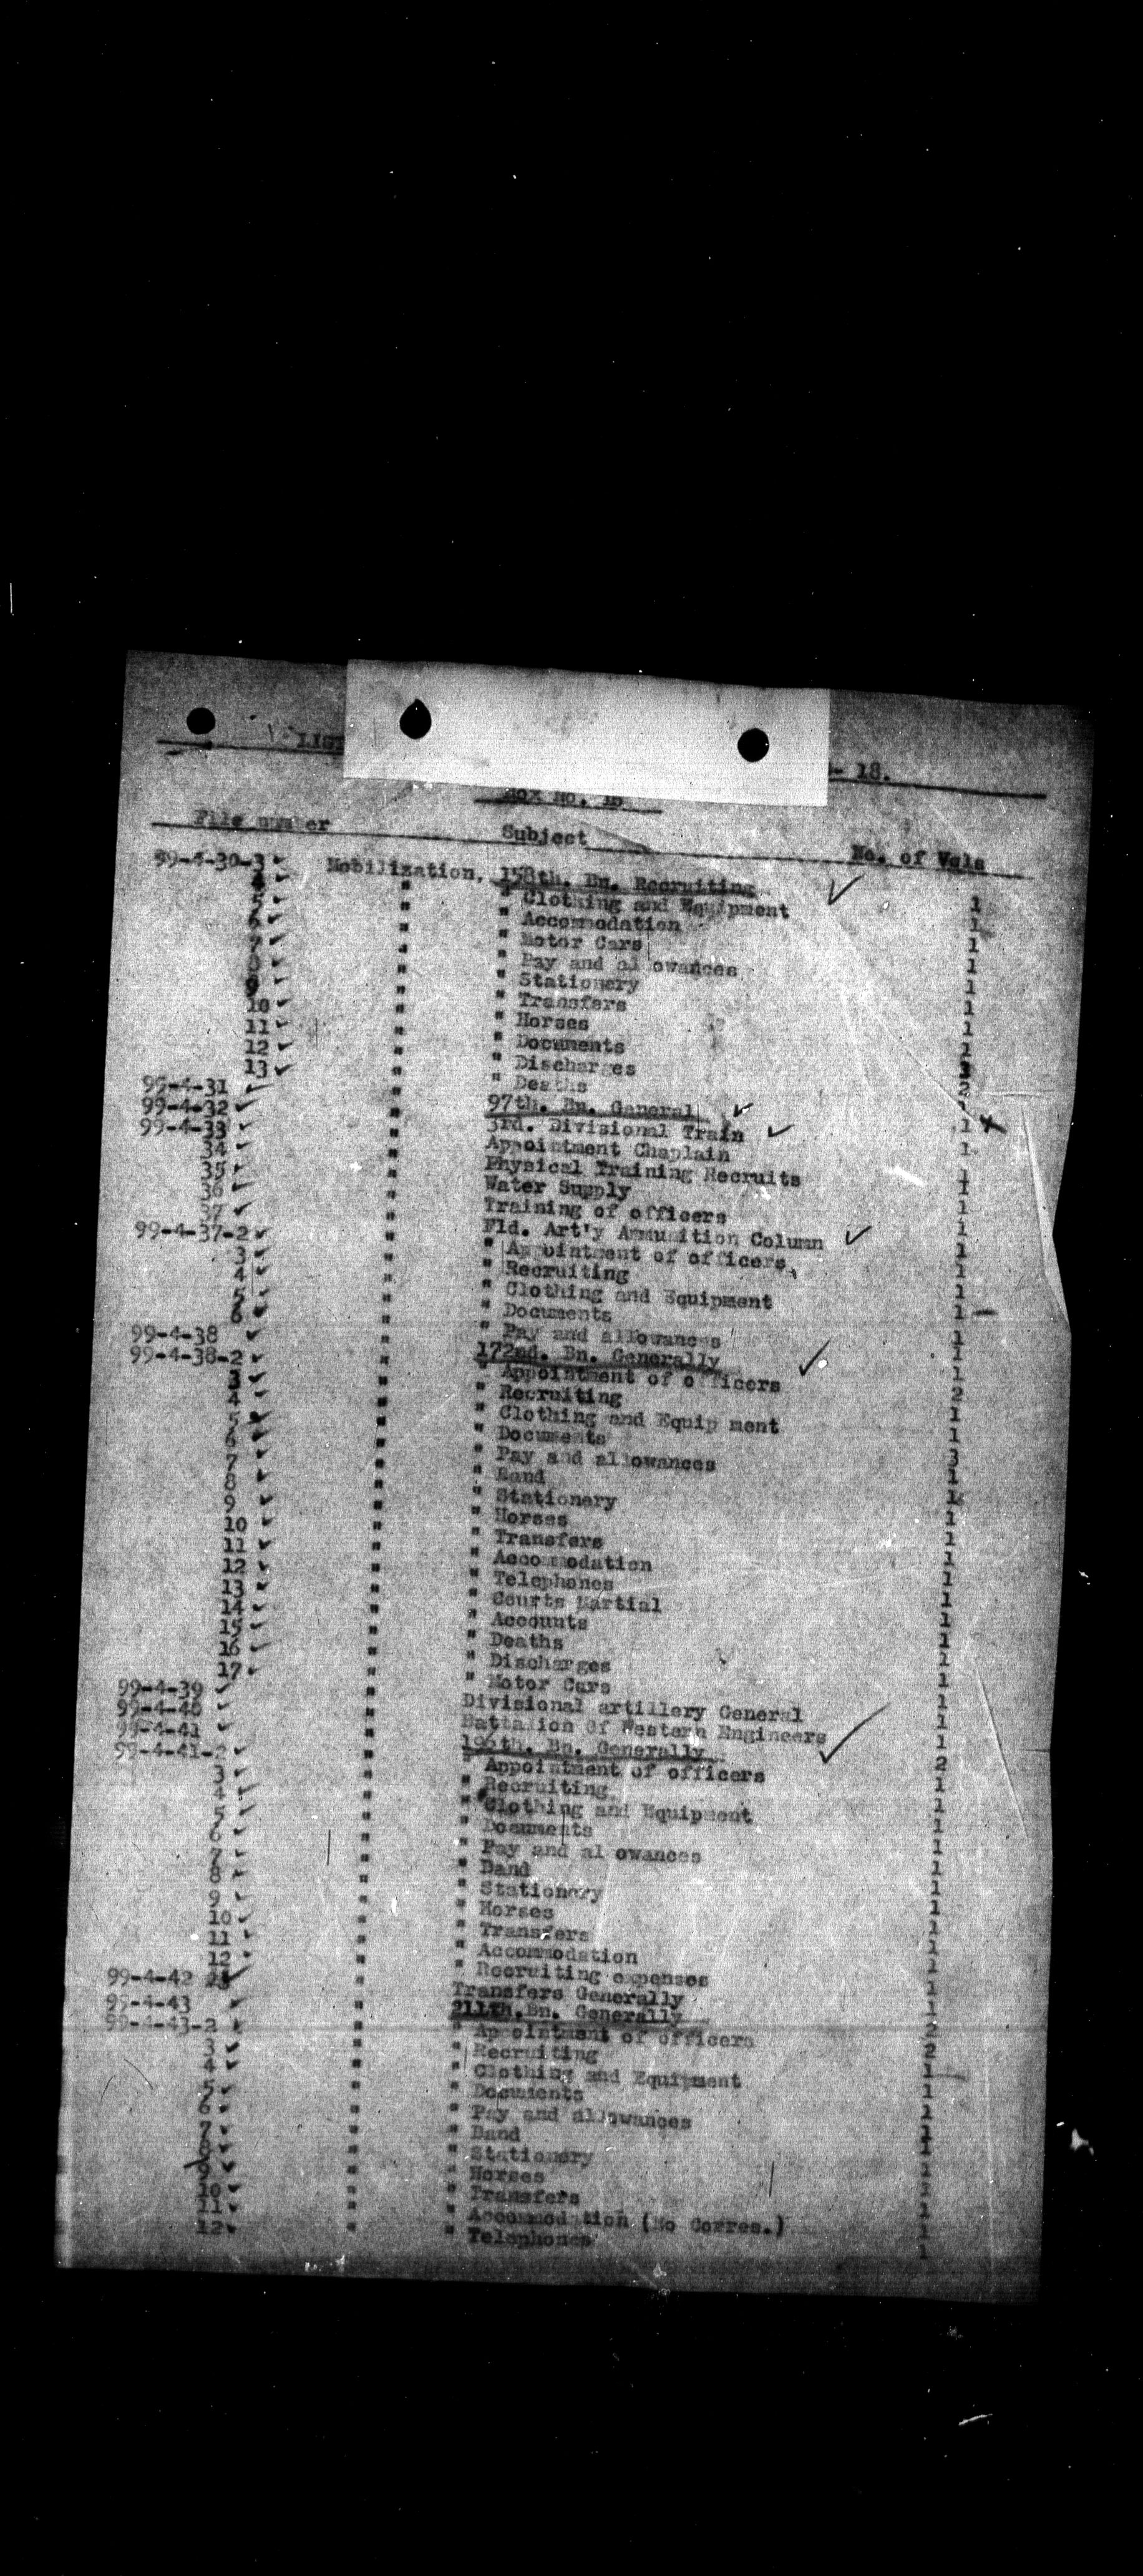 LIS - 18.
Box No. 15
File number Subject No. of Vols
99-4-30-3 Mobilization, 158th. Bn. Recruiting 1
4 " " Clothing and Equipment 1
5 " " Accommodation 1
6 " " Motor Cars 1
7 " " Pay and allowances 1
8 " " Stationery 1
9 " " Transfers 1
10 " " Horses 2
11 " " Documents 3
12 " " Discharges 2
13 " " Deaths 1
99-4-31 " 97th. Bn. General 1
99-4-32 " 3rd. Divisional Train 1
99-4-33 " Appointment Chaplain 1
34 " Physical Training Recruits 1
35 " Water Supply 1
36 " Training of officers 1
37 " Fld. Art'y Ammunition Column 1
99-4-37-2 " " Appointment of officers 1
3 " " Recruiting 1
4 " " Clothing and Equipment 1
5 " " Documents 1
6 " " Pay and allowances 1
99-4-38 " 172nd. Bn. Generally 1
99-4-38-2 " " Appointment of officers 2
3 " " Recruiting 1
4 " " Clothing and Equip ment 1
5 " " Documents 3
6 " " Pay and allowances 1
7 " " Band 1
8 " " Stationery 1
9 " " Horses 1
10 " " Transfers 1
11 " " Accommodation 1
12 " " Telephones 1
13 " " Courts Martial 1
14 " " Accounts 1
15 " " Deaths 1
16 " " Discharges 1
17 " " Motor Cars 1
99-4-39 " Divisional artillery General 1
99-4-40 " Battalion of Western Engineers 1
99-4-41 " 196th. Bn. Generally 2
99-4-41-2 " " Appointment of officers 1
3 " " Recruiting 1
4 " " Clothing and Equipment 1
5 " " Documents 1
6 " " Pay and al owances 1
7 " " Band 1
8 " " Stationery 1
9 " " Horses 1
10 " " Transfers 1
11 " " Accommodation 1
12 " " Recruiting expenses 1
99-4-42 " Transfers Generally 1
99-4-43 " 211th. Bn. Generally 2
99-4-43-2 " " Appointment of officers 2
3 " " Recruiting 1
4 " " Clothing and Equipment 1
5 " " Documents 1
6 " " Pay and allowances 1
7 " " Band 1
8 " " Stationery 1
9 " " Horses 1
10 " " Transfers 1
11 " " Accommodation (No Corres.) 1
12 " " Telephones 1